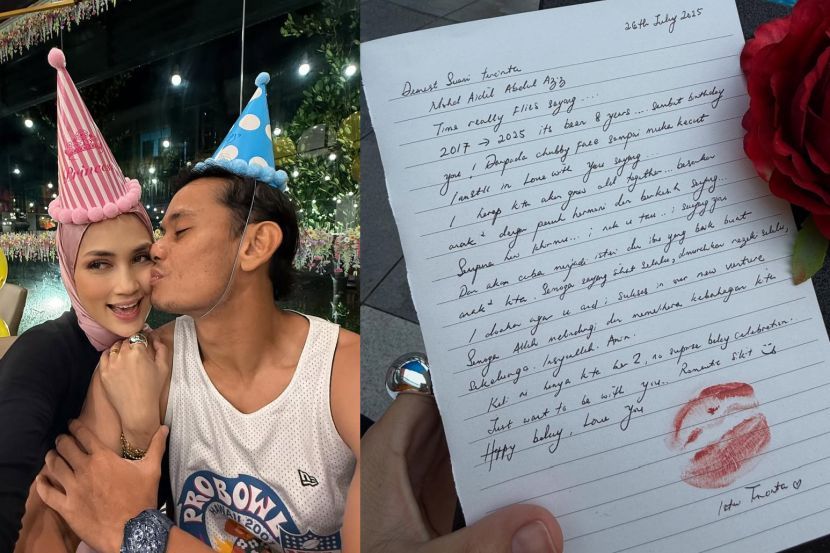 Princess
PROBOWL
HAWAII 200
26th July 2025
Dearest Suami tercinta
Mohd Aidil Abdul Aziz
Time really flies sayang ....
2017 → 2025 its been 8 years... Sambut birthday
you ! Daripada chubby face sampai muka kecut
I am still in love with you sayang...
I harap kita akan grow old together... besarkan
anak² dengan penuh harmoni dan berkasih sayang..
Sampai hari akhirnya... i nak u tau.. i sayang you
Dan akan cuba menjadi isteri dan ibu yang baik buat
anak² kita. Semoga sayang sihat selalu, dimurahkan rezeki selalu,
I doakan agar u and i sukses in our new venture
Semoga Allah melindungi dan memelihara kebahagiaan kita
Sekeluarga. Insyallah. Amin.
Kali ni hanya kita ber 2, no suprise bday celebration.
Just want to be with you.. Romantic Sikit
Happy bday, Love You
Isteri Tercinta